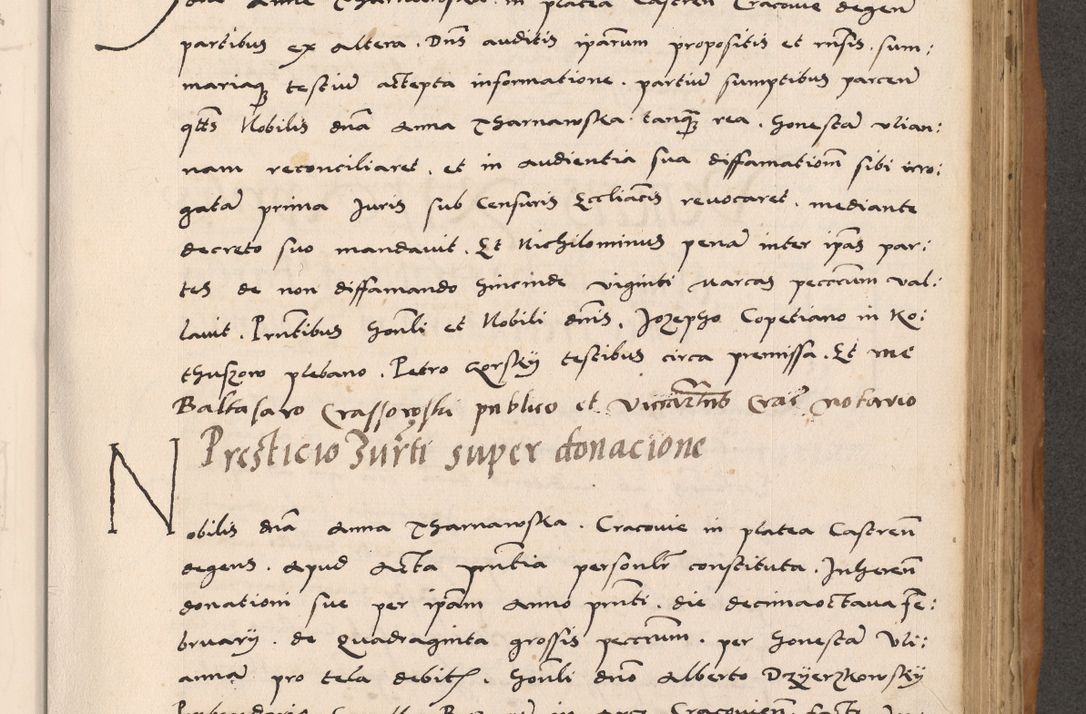 dna Anna Tharnawska in platea Castren Cracovie degen
partibus ex altera. Dns auditis iparum propositis et rnsis, sum:
mariaq testiu accepta informatione. partiu sumptibus parcen
qtts Nobilis dna Anna Tharnawska tanq rea, honesta ulian:
nam reconciliaret, et in audientia sua diffamationm sibi irro:
gata prima Iuris sub Censuris Eccliacis revocaret. mediante
decreto suo mandavit. Et Nichilominus pena inter ipas par:
tes de non diffamando hincinde viginti marcas peccrium val:
lavit. Prntibus honli et Nobili dnis, Jozepho Copetiano in Ko:
thuszow plebano. Petro Gorsky testibus circa premissa. Et me
Baltasaro Crassowski publico et Cra notario
Presticio Jurti super donacione
Nobilis dna Anna Tharnawska. Cracovie in platea Castren
degens. apud Acta prntia personlr constituta. Inheren
donationi sue per ipam Anno prnti. die decimaoctava fe:
bruarij. de Quadraginta grossis peccrium. per honesta Uli:
anna pro tela debitis, honli dno Alberto Dzyerzkowsky